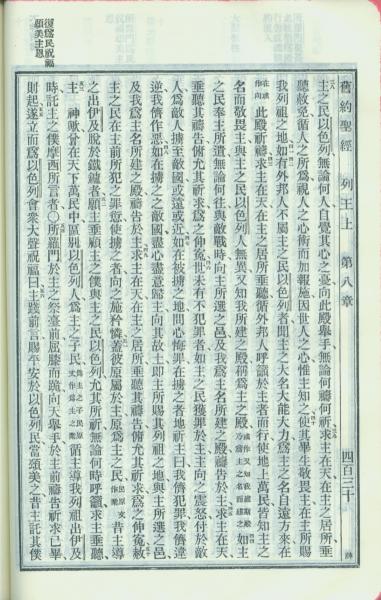 舊約聖經 列王上 第八章 四百三十
主之民以色列無論何人自覺其心之憂向此殿舉手無論何禱何祈求主在天主之居所垂
聽赦免循人之所為視人之心術而加報施因世人之心惟主知之使其畢生敬畏主在主所賜
我列祖之地如有外邦人不屬主之民以色列者聞主之大名大能大力為主之名自遠方來在
在或作向此殿祈禱求主在天主之居所垂聽循外邦人呼籲於主者而行使地上萬民皆知主之
名而敬畏主與主之民以色列人無異又知我所建之殿稱為主之殿如主
之民奉主所遣無論何往與敵戰時向主所選之邑及我為主名所建之殿禱告於主求主在天
垂聽其禱告俯允其祈求為之伸冤世未有不犯罪者如主之民獲罪於主主向之震怒付於敵
人為敵人擄至敵國或遠或近如在被擄之地間心悔罪在擄之者地祈主曰我儕犯罪我儕違
逆我儕作惡如在擄之之敵國盡心盡意歸主向其故土即主所賜其列祖之地與主所選之邑
及我為主名所建之殿禱告於主求主在天主之居所垂聽其禱告俯允其祈求為之伸冤赦
主之民在主前所犯之罪愆使擄之者向之施矜憐蓋彼原屬於主原為主之民昔主導
之出伊及脫於鐵罏者願主垂顧主之僕與主之民以色列允其所祈無論何時呼籲求主垂聽
主神歟昔在天下萬民中區別以色列人為主之子民循主導我列祖出伊及
時託主之僕摩西所言者○所羅門於主之祭臺前屈膝而跪向天舉手於主前禱告祈求已畢
則起遂立而為以色列會眾大聲祝福曰主踐前言賜平安於以色列民當頌美之昔主託其僕
復為民祝福
頌美主恩